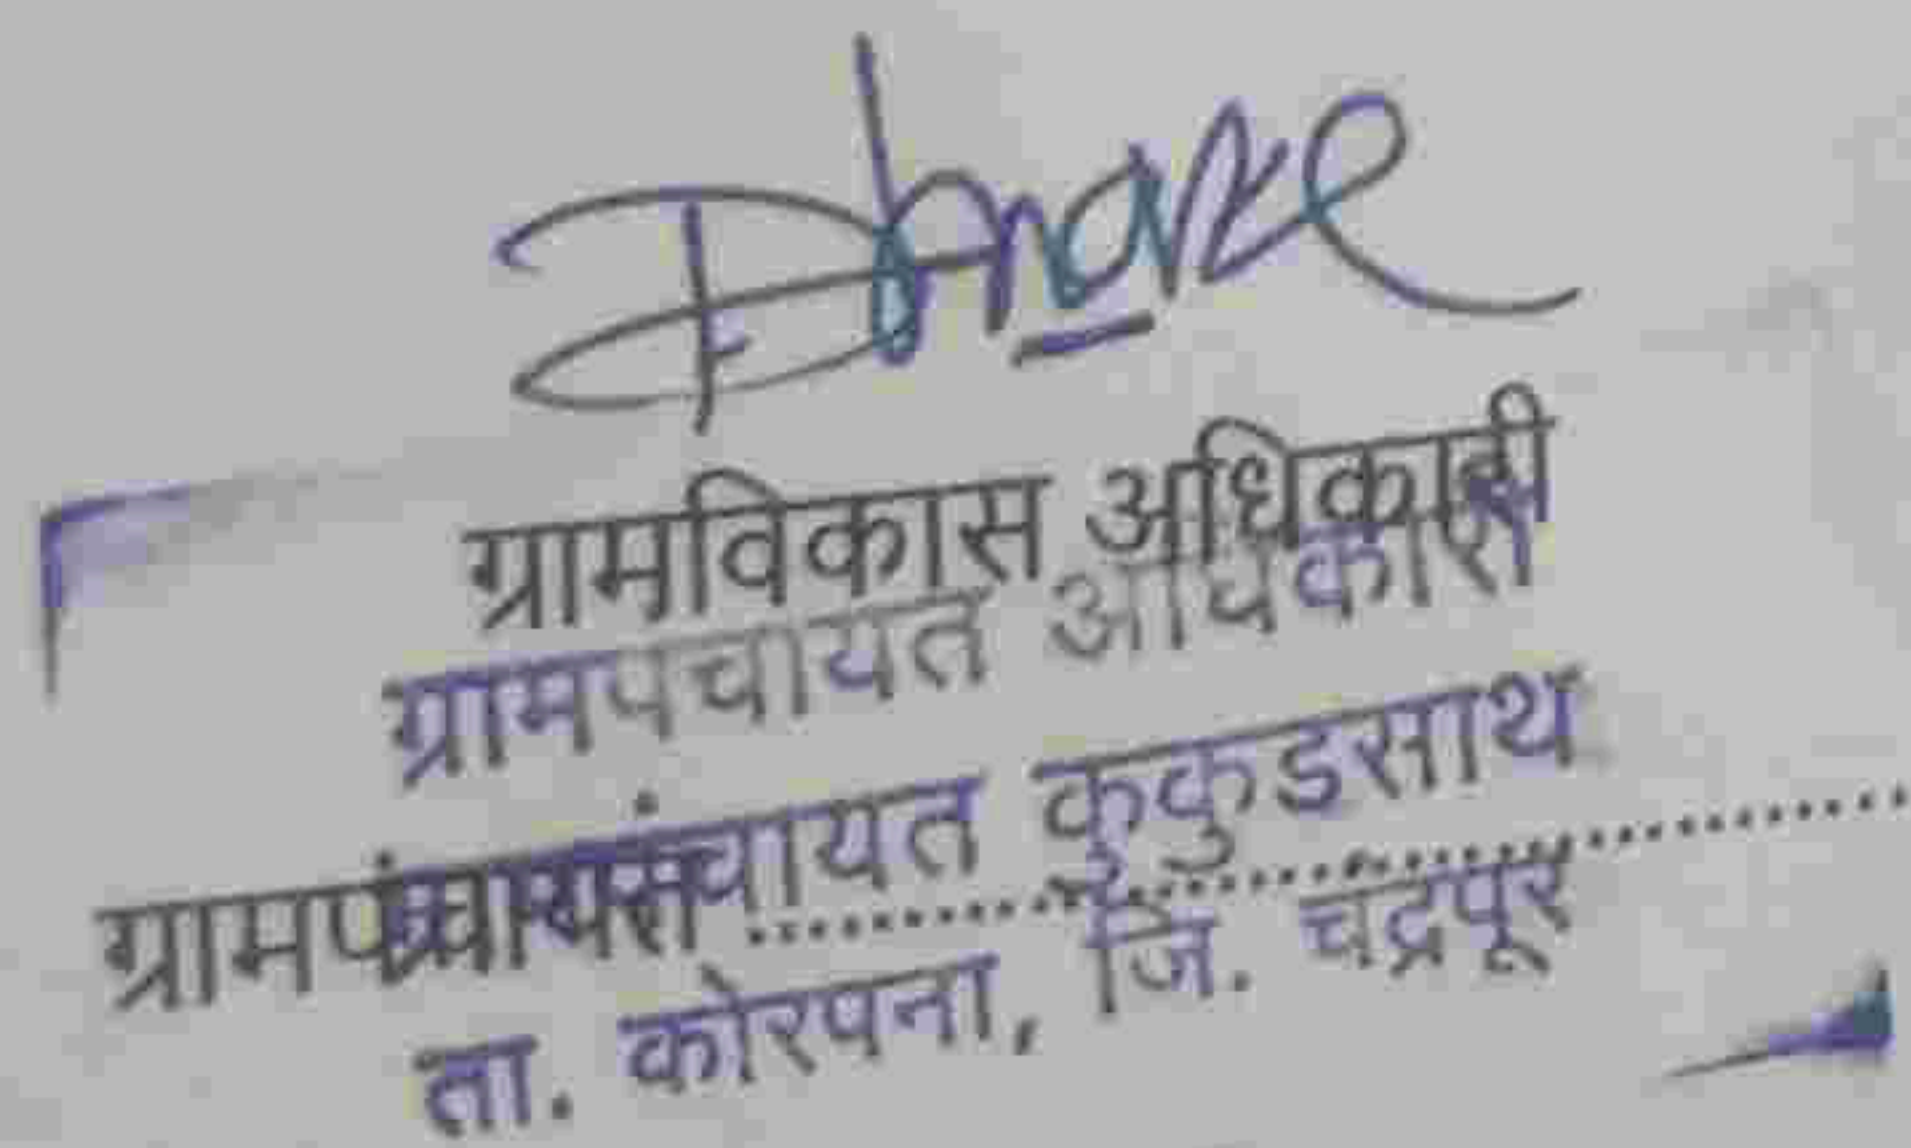 ग्रामविकास अधिकारी
ग्रामपंचायत अधिकारी
ग्रामपंचायत कुकुडसाथ
ग्रामपंचायत ........................................
ता. कोरपना, जि. चंद्रपूर